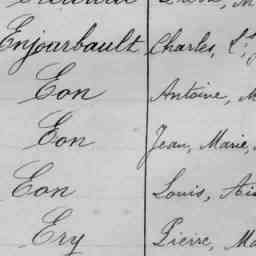 Enjourbault Charles,
Eon Antoine,
Eon Jean, Marie,
Eon Louis,
Ery Pierre,